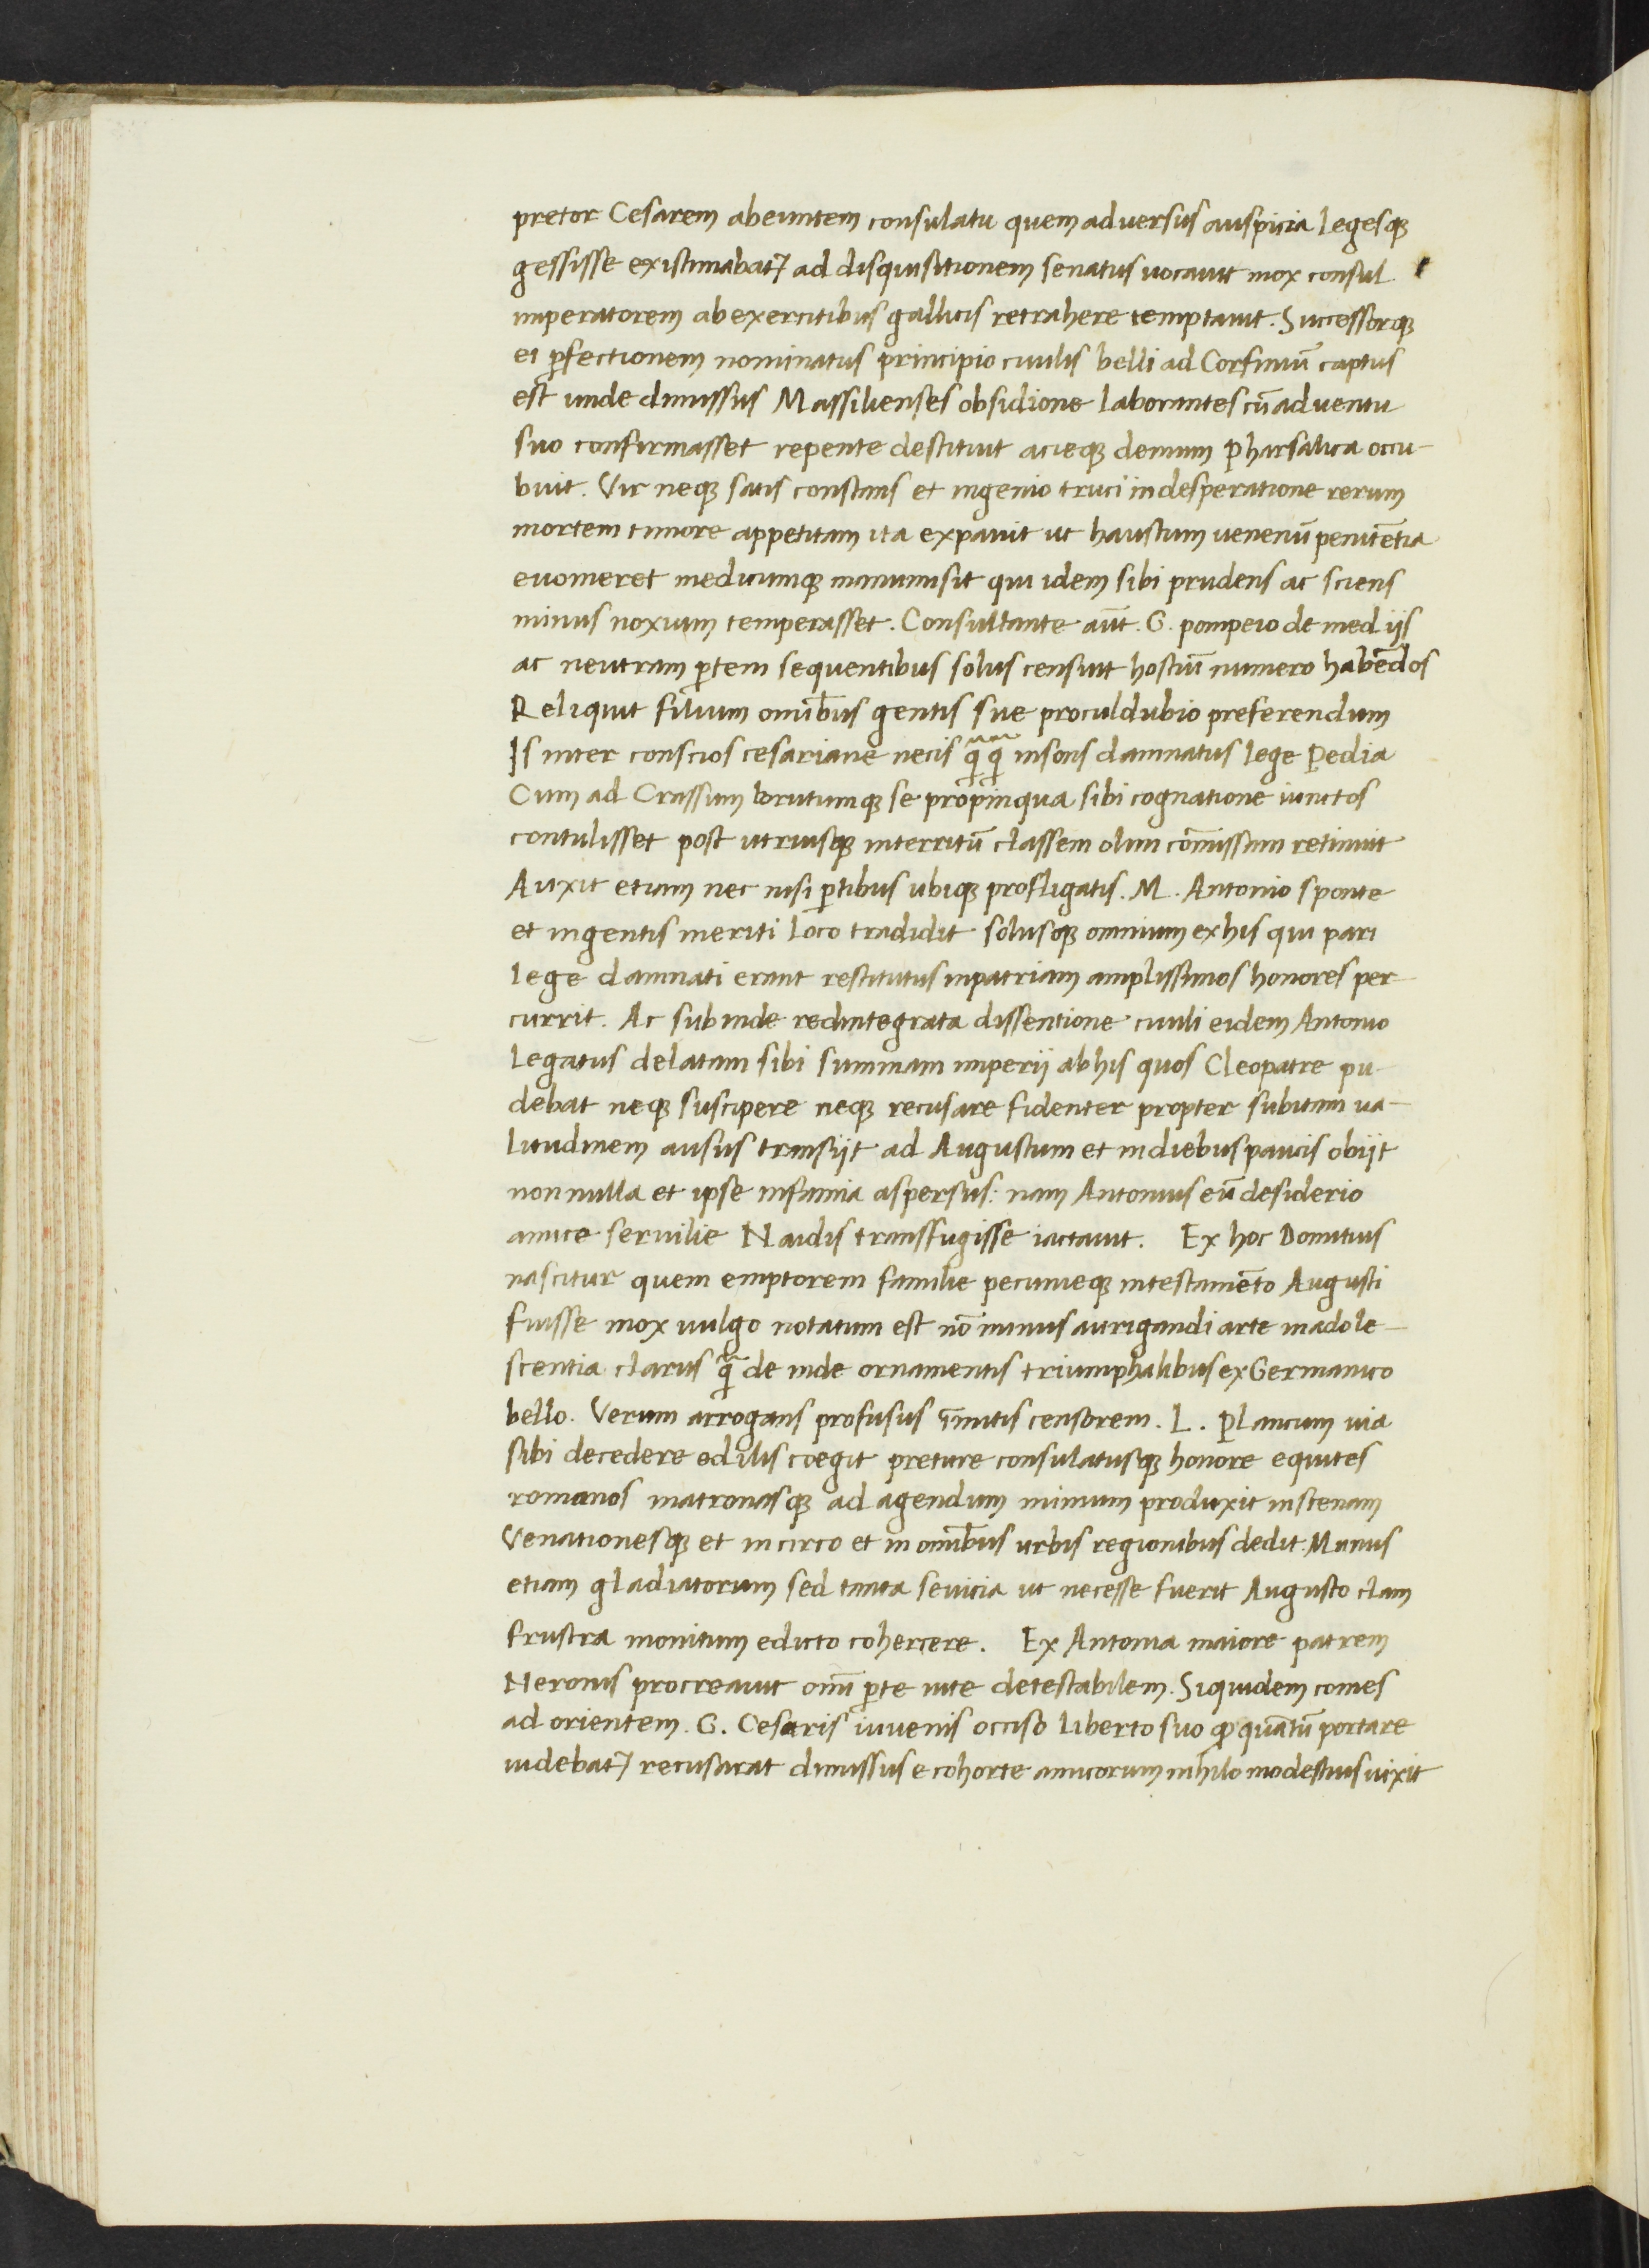 pretor Cesarem abeuntem consulatu quem aduersus auspicia legesqꝫ
gessisse existimabat᷑ ad disquisitionem senatus uocauit mox consul
imperatorem ab exercitibus gallicis retrahere temptauit. Successorqꝫ
et ꝑfectionem nominatus principio ciuilis belli ad Corfiniū captus
est unde dimissus Massilienses obsidione laborantes cū aduentu
suo confirmasset repente destituit acieqꝫ demum Pharsalica occu-
buit. Vir neqꝫ satis constans et ingenio truci in desperatione rerum
mortem timore appetitam ita expauit ut haustum uenenū penitētia
euomeret medicumqꝫ manumisit qui idem sibi prudens ac sciens
minus noxium temperasset. Consultante aūt. G. pompeio de mediis
ac neutram ꝑtem sequentibus solus censuit hostiū numero habēdos
Reliquit filium omībus gentis sue proculdubio preferendum
Is inter conscios cesariane necis qͣqͣ insons damnatus lege Pedia
Cum ad Crassum brutumqꝫ se propinqua sibi cognatione iunctos
contulisset post utriusqꝫ interritū classem olim cōmissam retinuit
Auxit etiam nec nisi ꝑtibus ubiqꝫ profligatis. M. Antonio sponte
et ingentis meriti loco tradidit solusqꝫ omnium ex his qui pari
lege damnati erant restitutus in patriam amplissimos honores per-
currit. Ac subinde redintegrata dissentione ciuili eidem Antonio
legatus delatam sibi summam imperij ab his quos Cleopatre pu-
debat neqꝫ suscipere neqꝫ recusare fidenter propter subitam ua-
litudinem ausus transijt ad Augustum et in diebus paucis obijt
nonnulla et ipse infamia aspersus: nam Antonius eū desiderio
amice seruilie Naidis transfugisse iactauit. Ex hoc Domitius
nascitur quem emptorem familie pecunieqꝫ in testamēto Augusti
fuisse mox uulgo notatum est nō minus aurigandi arte in adole-
scentia clarus qͣ̄ deinde ornamentis triumphalibus ex Germanico
bello. Verum arrogans profusus īmitis censorem. L. Plancum uia
sibi decedere edilis coegit preture consulatusqꝫ honore equites
romanos matronasqꝫ ad agendum mimum produxit in scenam
Venationesqꝫ et in circo et in omībus urbis regionibus dedit. Munus
etiam gladiatorum sed tanta seuicia ut necesse fuerit Augusto clam
frustra monitum edicto cohercere. Ex Antonia maiore patrem
Neronis procreauit omī ꝑte uite detestabilem. Siquidem comes
ad orientem. G. Cesaris iuuenis occiso liberto suo ꝙ quātū portare
iudebat᷑ recusarat dimissus e cohorte amicorum nihilo modestius uixit